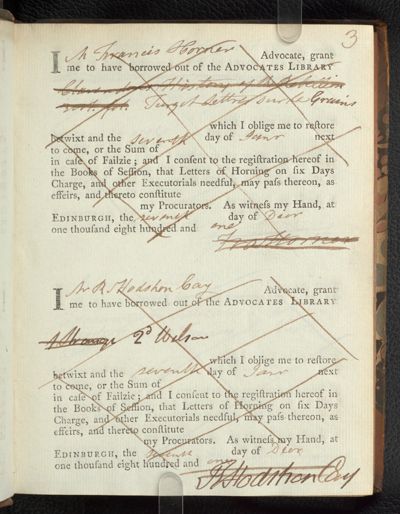 3
I Mr Francis Horner Advocate, grant
me to have borrowed out of the ADVOCATES LIBRARY
Clarendon's History of the Rebellion
Turgot Lettres sur les Grains
which I oblige me to reſtore
betwixt and the seventh day of Janr next
to come, or the Sum of
in caſe of Failzie; and I conſent to the regiſtration hereof in
the Books of Seſſion, that Letters of Horning on ſix Days
Charge, and other Executorials needful, may paſs thereon, as
effeirs, and thereto conſtitute
my Procurators. As witneſs my Hand, at
EDINBURGH, the seventh day of Decr
one thouſand eight hundred and one
Fra. Horner
I Mr R. Hodshon Cay Advocate, grant
me to have borrowed out of the ADVOCATES LIBRARY
1 Strange 2d Wilson
which I oblige me to reſtore
betwixt and the seventh day of Janr next
to come, or the Sum of
in caſe of Failzie; and I conſent to the regiſtration hereof in
the Books of Seſſion, that Letters of Horning on ſix Days
Charge, and other Executorials needful, may paſs thereon, as
effeirs, and thereto conſtitute
my Procurators. As witneſs my Hand, at
EDINBURGH, the seventh day of Decr
one thouſand eight hundred and one
R Hodshon Cay